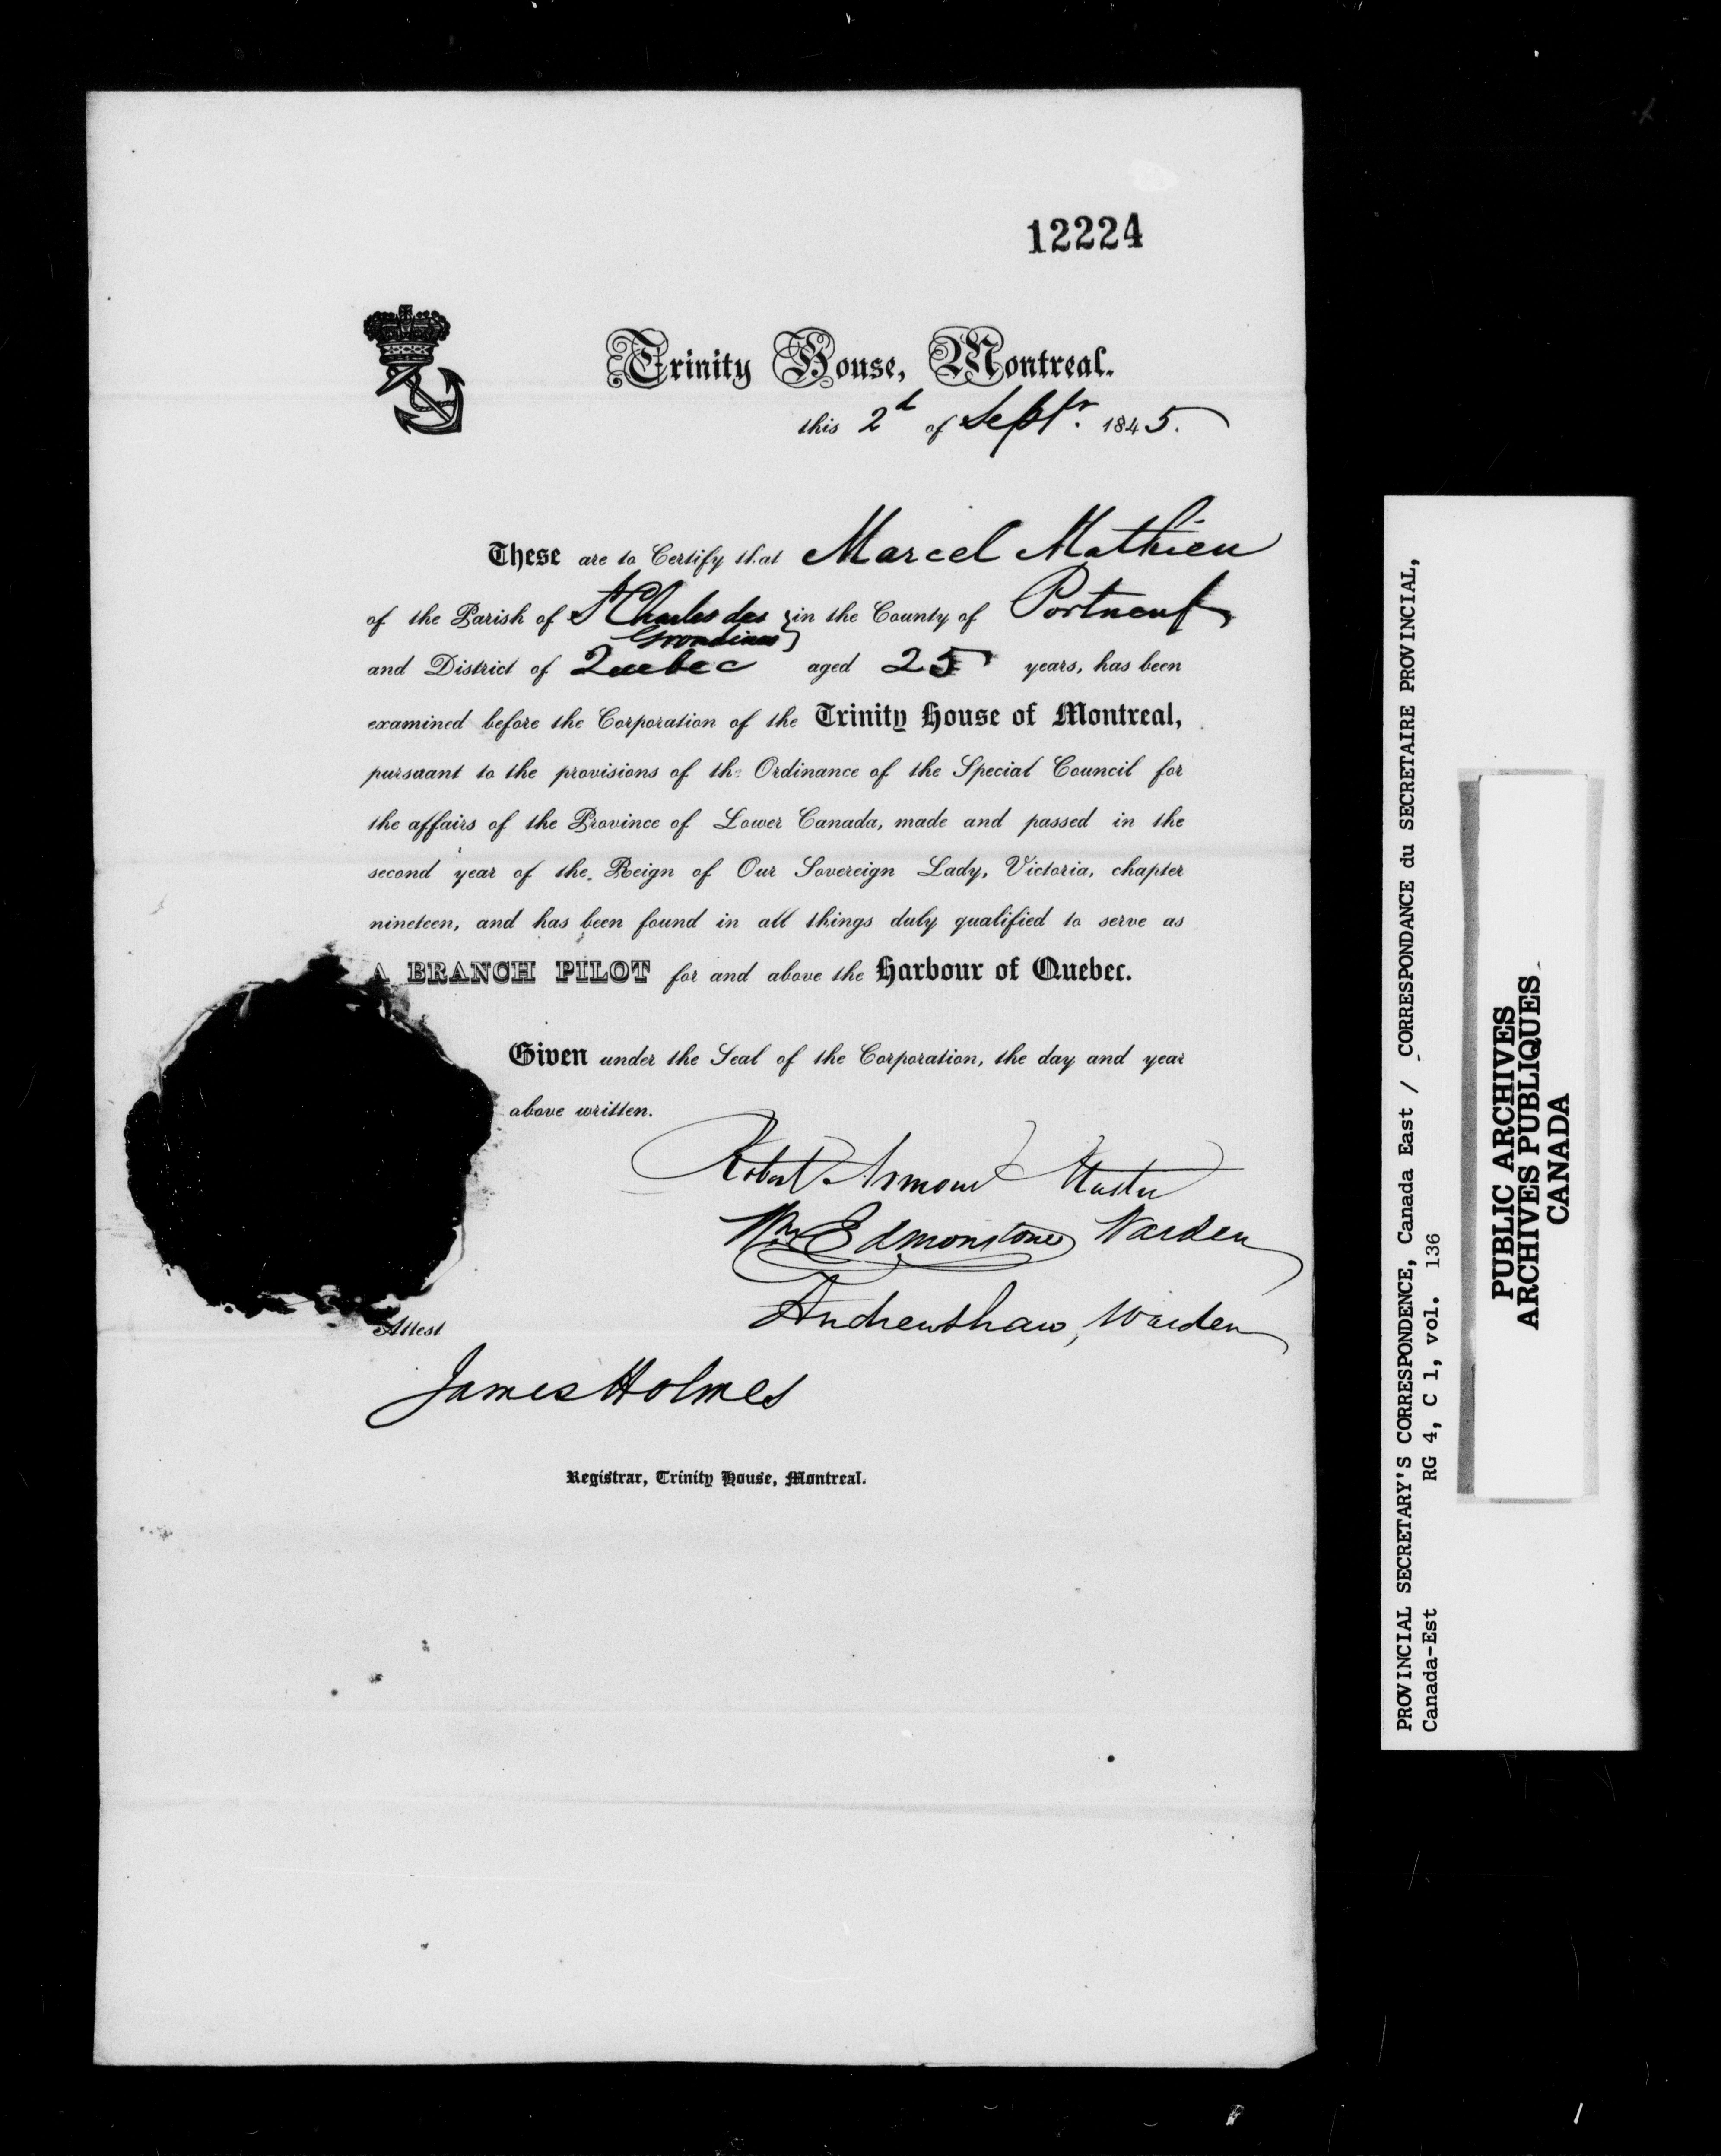 12224
Trinity House, Montreal.
this 2d of Septr. 1845.
These are to Certify that Marcel Mathieu
of the Parish of St Charles des } in the County of Portneuf
Grondines
and District of Quebec aged 25 years, has been
examined before the Corporation of the Trinity House of Montreal,
pursuant to the provisions of the Ordinance of the Special Council for
the affairs of the Province of Lower Canada, made and passed in the
second year of the Reign of Our Sovereign Lady, Victoria, chapter
nineteen, and has been found in all things duly qualified to serve as
A BRANCH PILOT for and above the Harbour of Quebec.
Given under the Seal of the Corporation, the day and year
above written.
Robert Armour Master
Wm Edmonstone Warden
Andrew Shaw, Warden
Attest
James Holmes
Registrar, Trinity House, Montreal.
PROVINCIAL SECRETARY'S CORRESPONDENCE, Canada East / CORRESPONDANCE du SECRETAIRE PROVINCIAL,
Canada-Est RG 4, C 1, vol. 136
PUBLIC ARCHIVES
ARCHIVES PUBLIQUES
CANADA